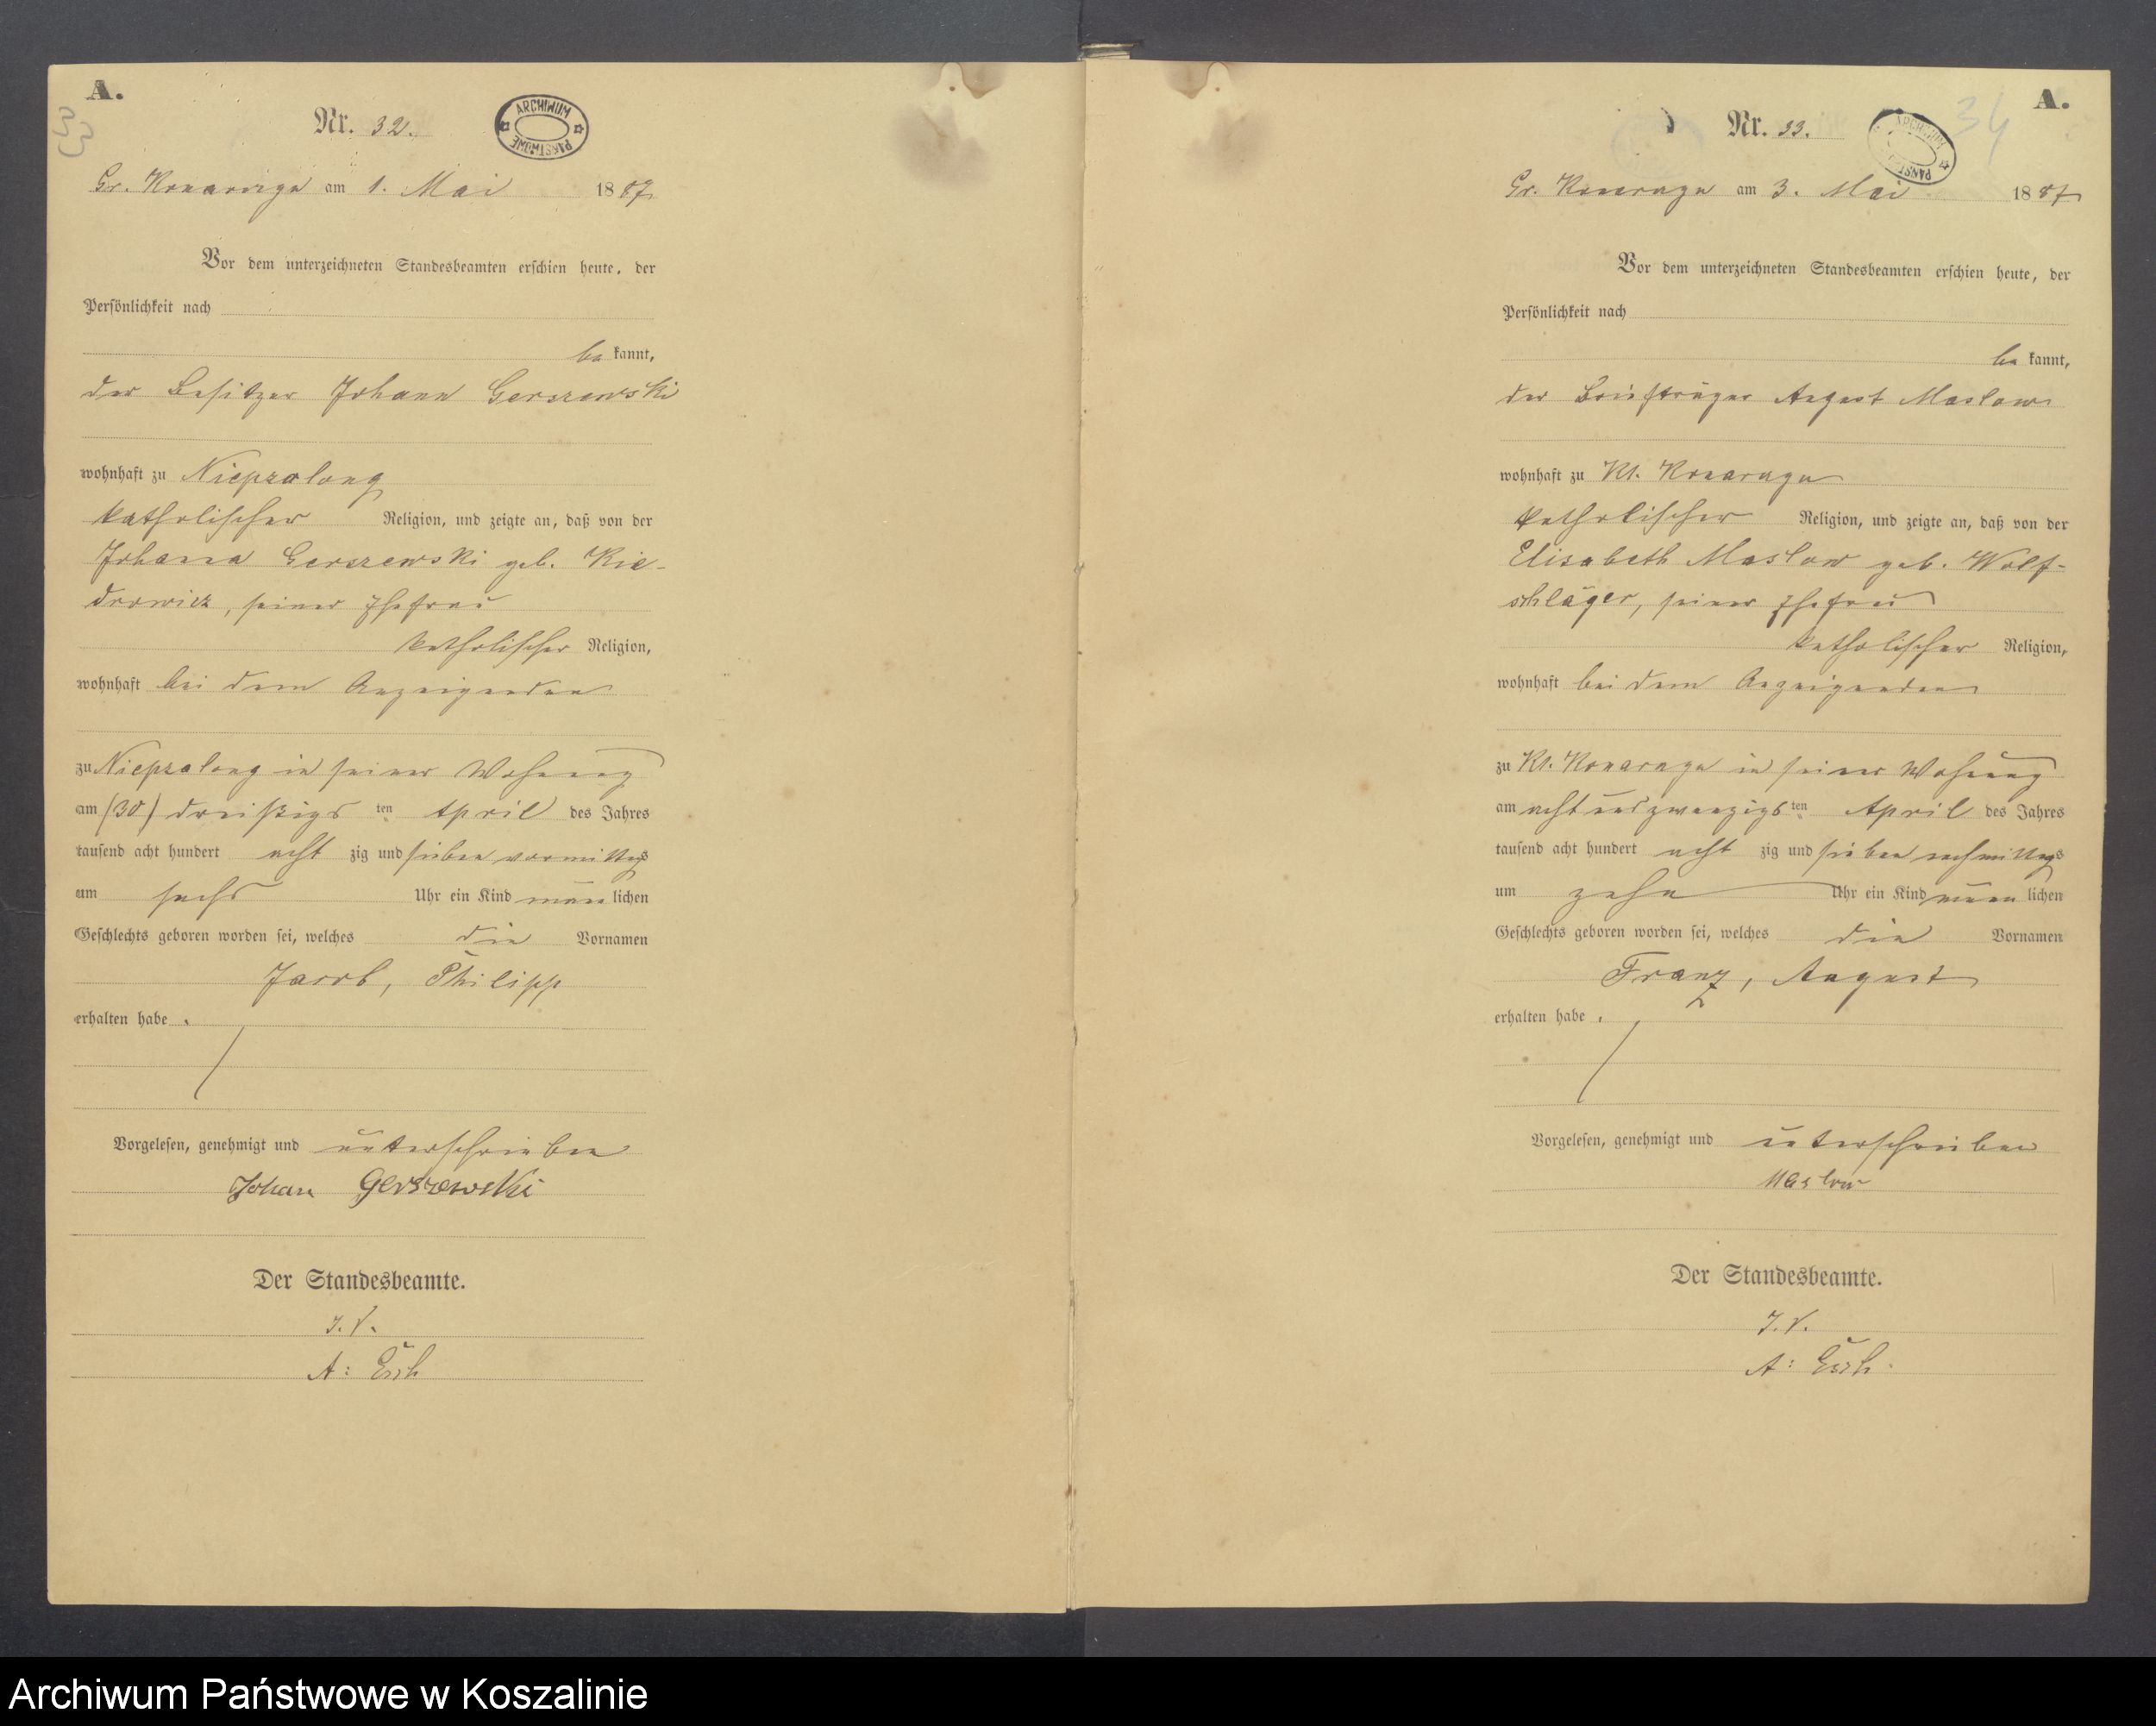 A.
33
Nr. 32.
ARCHIWUM PAŃSTWOWE
Gr. Konarczyn am 1. Mai 1887
Vor dem unterzeichneten Standesbeamten erschien heute, der
Persönlichkeit nach
bekannt,
der Besitzer Johann Gerszewski
wohnhaft zu Niepszolong
katholischer Religion, und zeigte an, daß von der
Johanna Gerszewski geb. Kie-
drowicz, seiner Ehefrau
katholischer Religion,
wohnhaft bei dem Anzeigenden
zu Niepszolong in seiner Wohnung
am (30) dreißigsten April des Jahres
tausend acht hundert achtzig und sieben vormittags
um sechs Uhr ein Kind männlichen
Geschlechts geboren worden sei, welches die Vornamen
Jacob, Philipp
erhalten habe.
Vorgelesen, genehmigt und unterschrieben
Johan Gerszewski
Der Standesbeamte.
I. V.
A:
A.
34
Nr. 33.
ARCHIWUM PAŃSTW
Gr. Konarczyn am 3. Mai 1887
Vor dem unterzeichneten Standesbeamten erschien heute, der
Persönlichkeit nach
bekannt,
der Briefträger August Maslow
wohnhaft zu Kl. Konarczyn
katholischer Religion, und zeigte an, daß von der
Elisabeth Maslow geb. Wolf-
schläger, seiner Ehefrau
katholischer Religion,
wohnhaft bei dem Anzeigenden
zu Kl. Konarczyn in seiner Wohnung
am acht und zwanzigsten April des Jahres
tausend acht hundert achtzig und sieben nachmittags
um zehn Uhr ein Kind männlichen
Geschlechts geboren worden sei, welches die Vornamen
Franz, August
erhalten habe.
Vorgelesen, genehmigt und unterschrieben
Maslow
Der Standesbeamte.
I. V.
A:
Archiwum Państwowe w Koszalinie